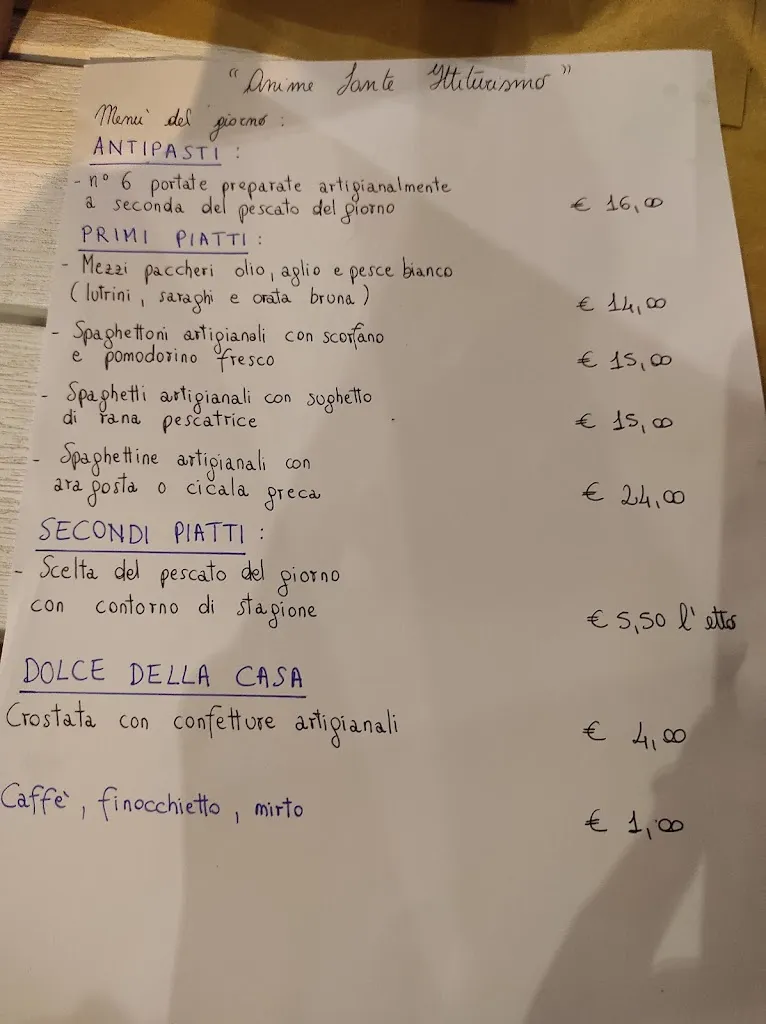 "Anime Sante Ittiturismo"
Menù del giorno :
ANTIPASTI :
- n° 6 portate preparate artigianalmente
a seconda del pescato del giorno € 16,00
PRIMI PIATTI :
- Mezzi paccheri olio, aglio e pesce bianco
(lutrini, saraghi e orata bruna) € 14,00
- Spaghettoni artigianali con scorfano
e pomodorino fresco € 15,00
- Spaghetti artigianali con sughetto
di rana pescatrice € 15,00
- Spaghettine artigianali con
aragosta o cicala greca € 24,00
SECONDI PIATTI :
- Scelta del pescato del giorno
con contorno di stagione € 5,50 l'etto
DOLCE DELLA CASA
Crostata con confetture artigianali € 4,00
Caffè, finocchietto, mirto € 1,00